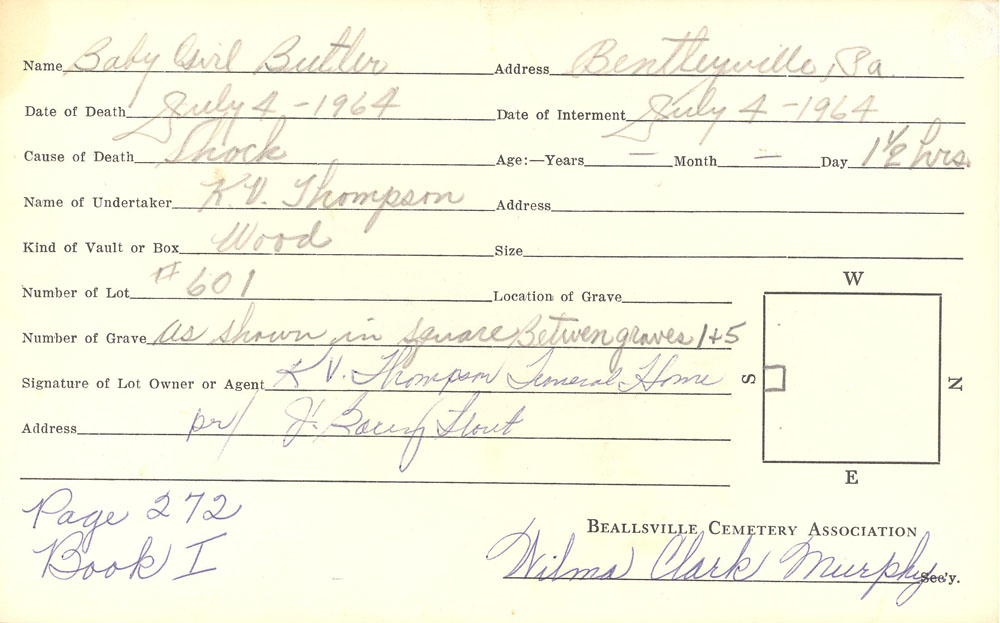 Name Baby Girl Butler Address Bentleyville, Pa.
Date of Death July 4 - 1964 Date of Interment July 4 - 1964
Cause of Death Shock Age:—Years — Month — Day 1 1/2 hrs.
Name of Undertaker K. V. Thompson Address
Kind of Vault or Box Wood Size
Number of Lot #601 Location of Grave
Number of Grave as shown in square Betwen graves 1+5
Signature of Lot Owner or Agent K V. Thompson Funeral Home
Address pr/ J. Stout
W
S
N
E
Page 272
Book I
Beallsville Cemetery Association
Wilma Clark Murphy Sec'y.